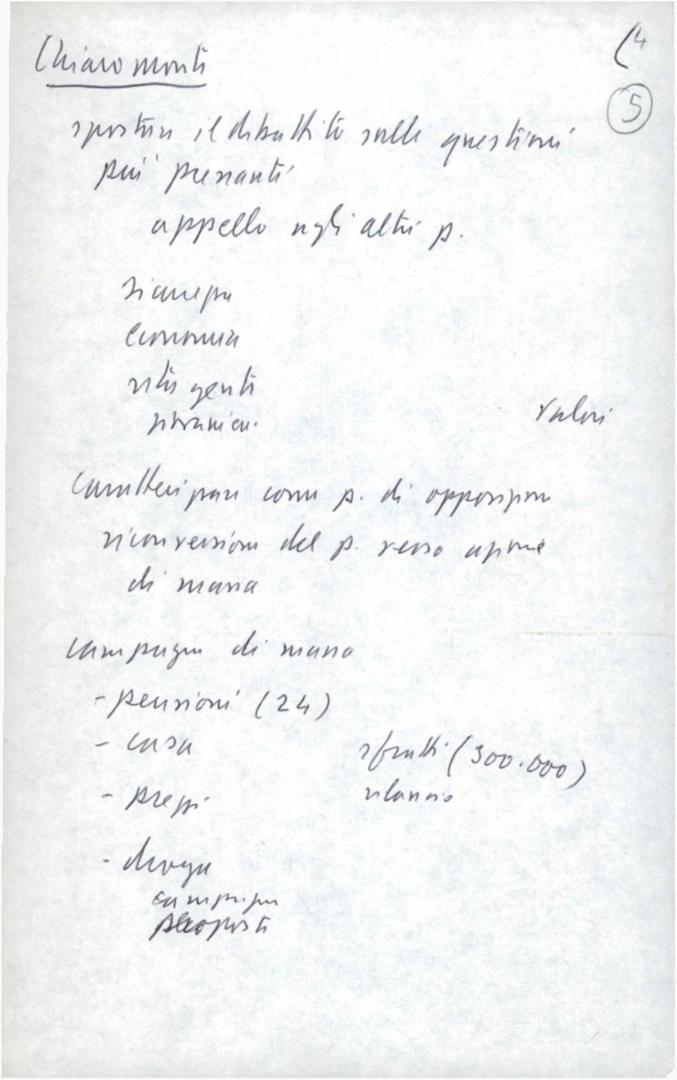 Chiaromonte
(4
5
spostare il dibattito sulle questioni
più pressanti
appello agli altri p.
sicurezza
economia
vita gente
valori
caratterizzare come p. di opposizione
riconversione del p. verso azione
di massa
campagna di massa
- pensioni (24)
- casa sfratti (300.000)
- prezzi rilancio
- droga
campagna
proposte